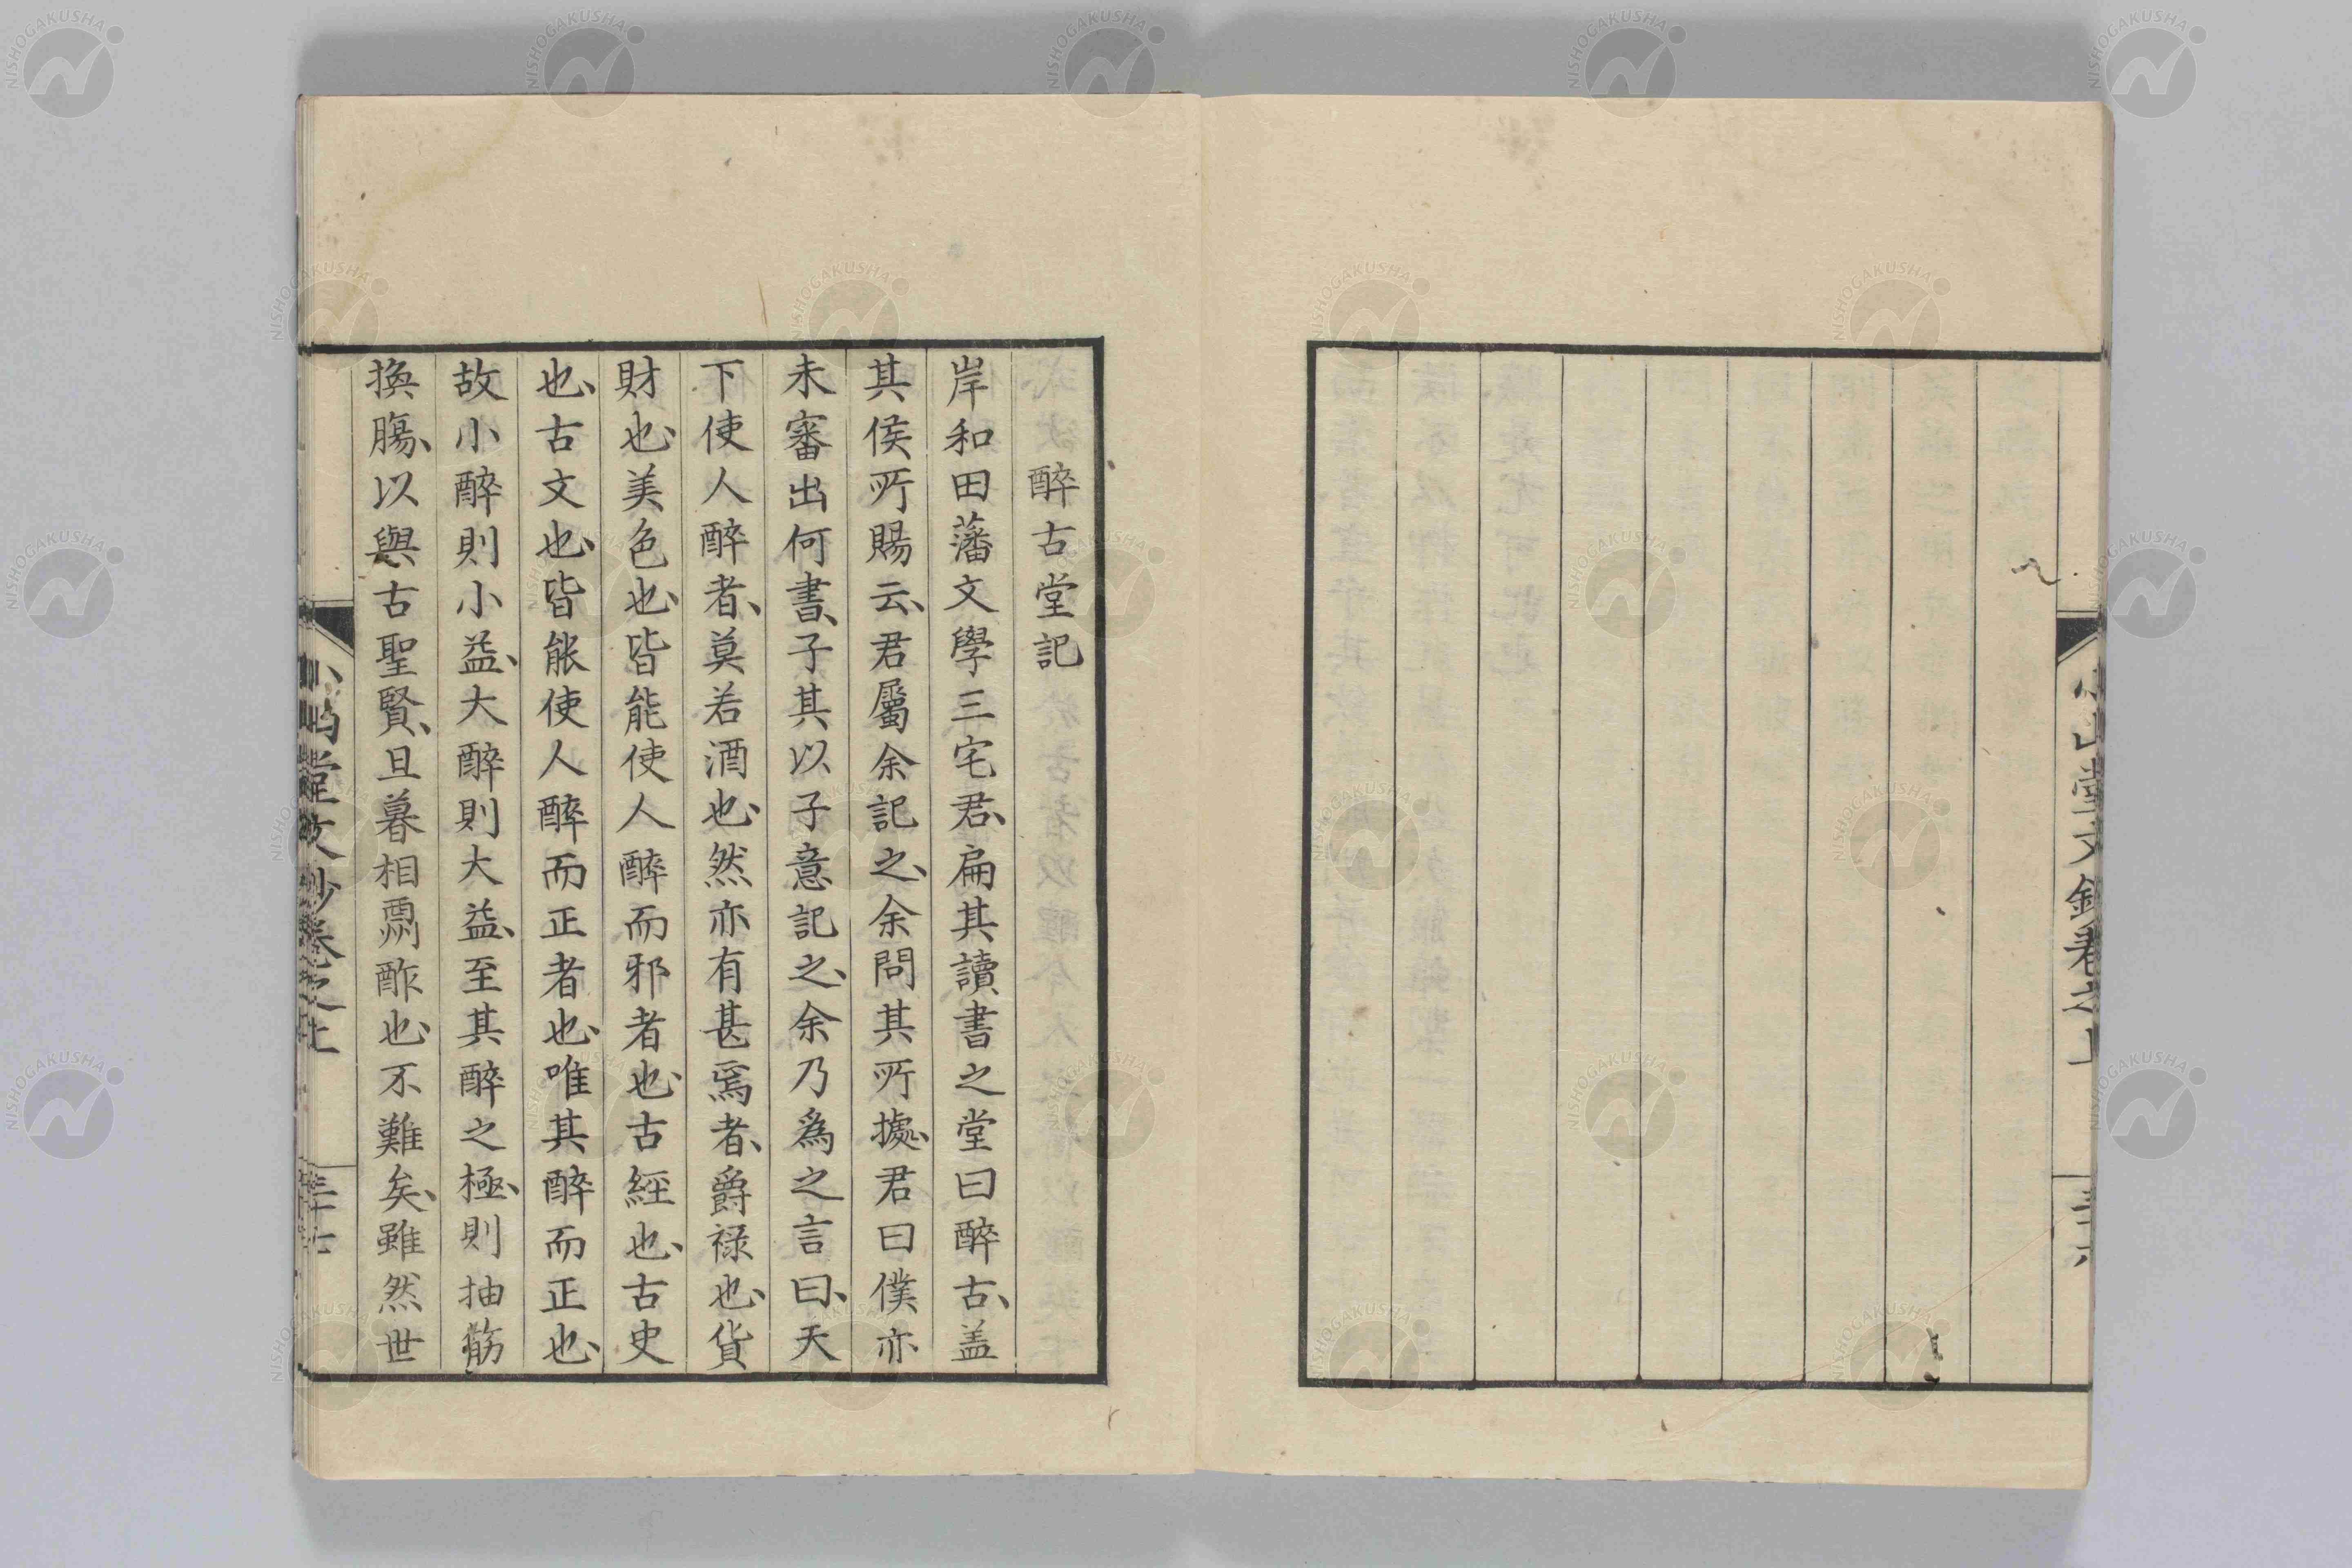 小山堂文鈔卷之上
三十六
醉古堂記
岸和田藩文學三宅君、扁其讀書之堂曰醉古、盖
其侯所賜云、君屬余記之、余問其所據、君曰僕亦
未審出何書、子其以子意記之、余乃爲之言曰、天
下使人醉者、莫若酒也、然亦有甚焉者、爵禄也、貨
財也、美色也、皆能使人醉而邪者也、古經也、古史
也、古文也、皆能使人醉而正者也、唯其醉而正也、
故小醉則小益、大醉則大益、至其醉之極、則抽筋
換腸、以與古聖賢、旦暮相酬酢也、不難矣、雖然世
堂文鈔卷之上
三十七
NISHOGAKUSHA